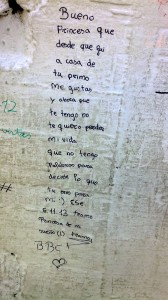 Bueno
Princesa que
desde que fui
a casa de
tu primo
Me gustas
y ahora que
te tengo no
te quiero perder
mi vida
que no tengo
Palabras para
decirte lo que
tu eres para
mi :) ESE
8:11.13
Princesa de mi
sueño (1)
BBC !
12
##